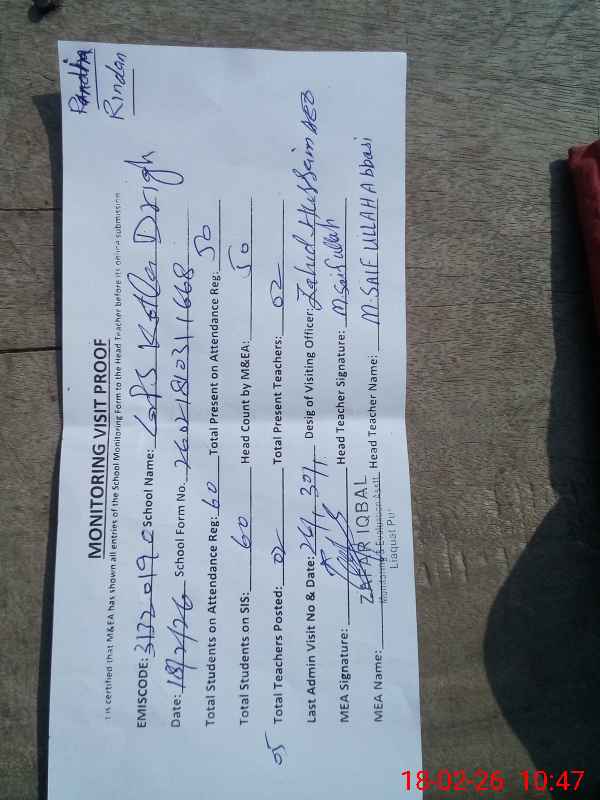 Rindan
MONITORING VISIT PROOF
t is certified that M&EA has shown all entries of the School Monitoring Form to the Head Teacher before its online submission
EMISCODE: 31220190 School Name: GPS Kotla Drigh
Date: 18/2/26 School Form No. 2602181031668
Total Students on Attendance Reg: 60 Total Present on Attendance Reg: 50
Total Students on SIS: 60 Head Count by M&EA: 50
05 Total Teachers Posted: 02 Total Present Teachers: 02
Last Admin Visit No & Date: Desig of Visiting Officer: Zahid Hussain AEO
MEA Signature: Head Teacher Signature: M Saif ullah
MEA Name: ZAFAR IQBAL Head Teacher Name: M. SAIF ULLAH Abbasi
Monitoring & Evaluation Asstt
Liaquat Pur
18-02-26 10:47